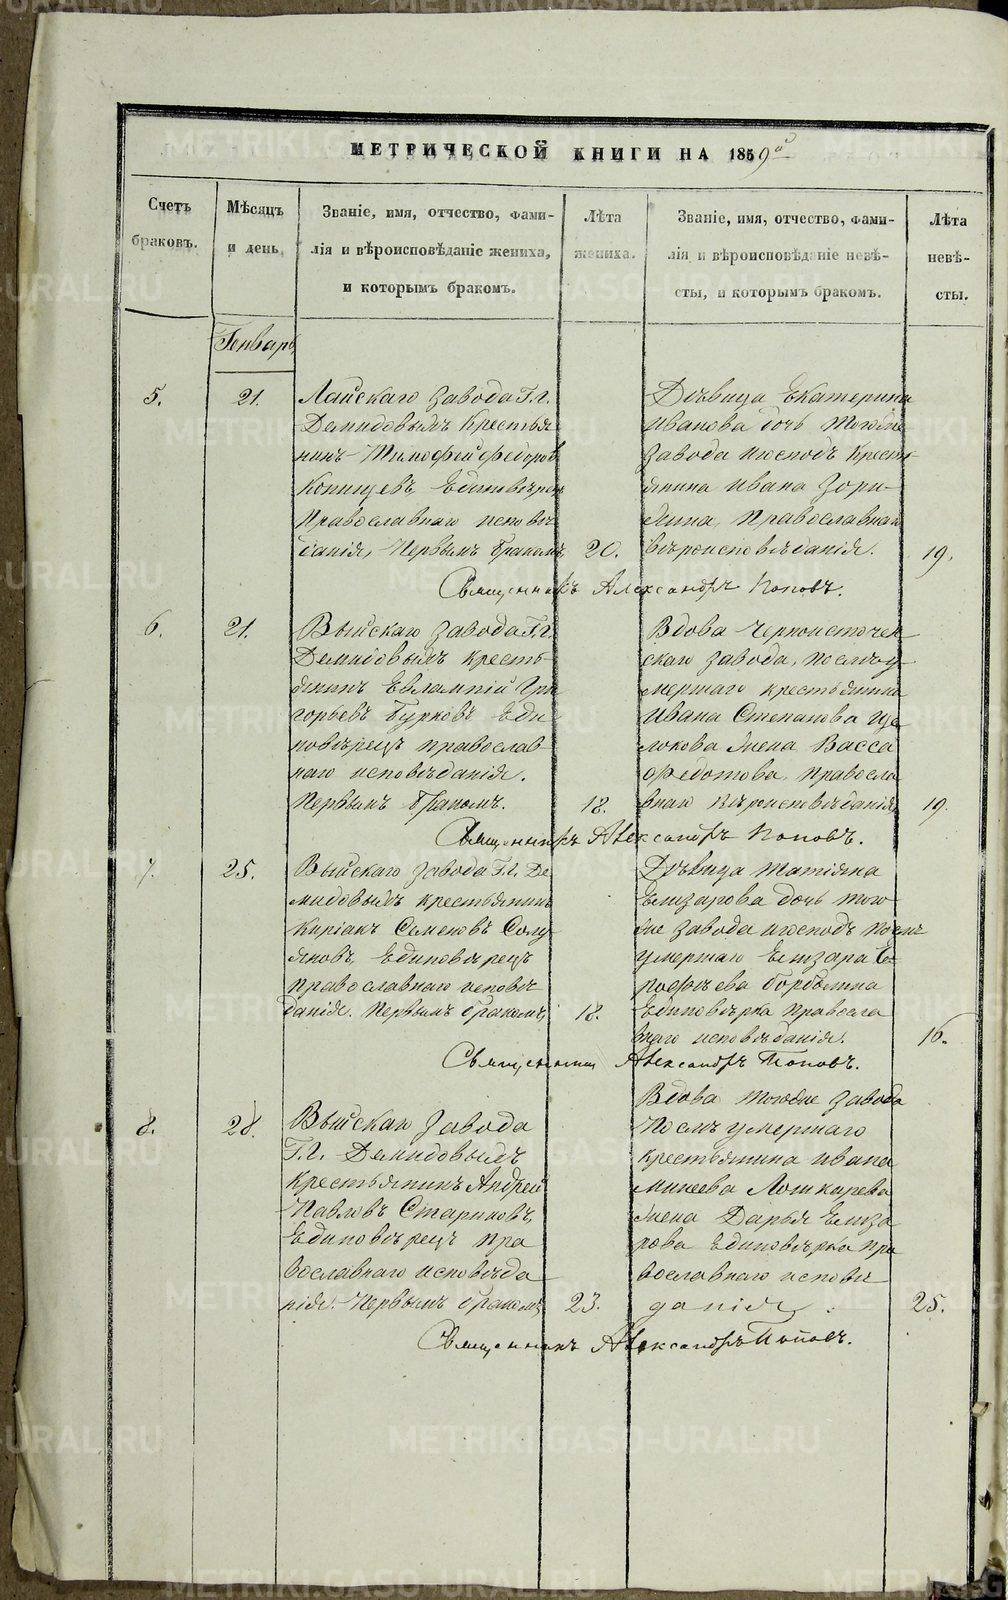 МЕТРИЧЕСКОЙ КНИГИ НА 1859й
Счетъ браковъ.
Мѣсяцъ и день.
Званіе, имя, отчество, фами-
лія и вѣроисповѣданіе жениха,
и которымъ бракомъ.
Лѣта жениха.
Званіе, имя, отчество, фами-
лія и вѣроисповѣданіе невѣ-
сты, и которымъ бракомъ.
Лѣта невѣ-
сты.
Генварь
5.
21.
Лайскаго завода Г.г.
Демидовыхъ Крестья
нинъ Тимофей Федоровъ
Копищевъ Единовѣрецъ
Православнаго исповѣ
данія, Первымъ бракомъ,
20.
Дѣвица Екатерина
Иванова дочь Тогоже
завода и господъ Крестья
янина Ивана Зори-
хина, Православнаго
вѣроисповѣданія.
19.
Священникъ Александръ Поповъ.
6.
21.
Выйскаго завода Г.г.
Демидовыхъ кресть-
янинъ Евлампій Гри
горьевъ Бурковъ Еди
новѣрецъ православ
наго исповѣданія.
Первымъ бракомъ.
18.
Вдова Черноисточен
скаго завода, послѣ у-
мершаго крестьянина
Ивана Степанова Ще
локова жена Васса
Федотова, правосла
внаго вѣроисповѣданія
19.
Священникъ Александръ Поповъ.
7.
25.
Выйскаго завода Г.г. Де
мидовыхъ крестьянинъ
Киріакъ Семеновъ Солу
яновъ Единовѣрецъ
православнаго исповѣ
данія. Первымъ бракомъ,
18.
Дѣвица Татіяна
Елизарова дочь того
же завода и господъ послѣ
умершаго Елизара
Единовѣрка правосла
внаго исповѣданія.
16.
Священникъ Александръ Поповъ.
8.
28.
Выйскаго завода
Г.г. Демидовыхъ
Крестьянинъ Андрей
Павловъ Стариковъ,
Единовѣрецъ пра
вославнаго исповѣда
нія. Первымъ бракомъ,
23.
Вдова тогоже завода
Послѣ умершаго
крестьянина Ивана
Минеева Лошкарева
жена Дарья Елиза
рова Единовѣрка пра
вославнаго исповѣ
данія.
25.
Священникъ Александръ Поповъ.
METRIKI.GASO-URAL.RU